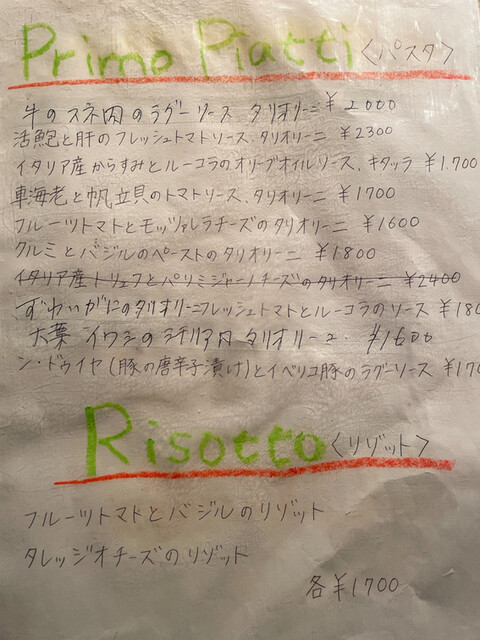 Primo Piatti 〈パスタ〉
牛のスネ肉のラグーソース タリオリーニ ¥2000
活鮑と肝のフレッシュトマトソース、タリオリーニ ¥2300
イタリア産からすみとルーコラのオリーブオイルソース、キタッラ ¥1.700
車海老と帆立貝のトマトソース、タリオリーニ ¥1700
フルーツトマトとモッツァレラチーズのタリオリーニ ¥1600
クルミとバジルのペーストのタリオリーニ ¥1800
イタリア産トリュフとパルミジャーノチーズのタリオリーニ ¥2400
ずわいがにのタリオリーニフレッシュトマトとルーコラのソース ¥180
大葉 イワシのシチリア風 タリオリーニ ¥1600
ン・ドゥイヤ(豚の唐辛子漬け)とイベリコ豚のラグーソース ¥170
Risotto 〈リゾット〉
フルーツトマトとバジルのリゾット
タレッジオチーズのリゾット
各¥1700